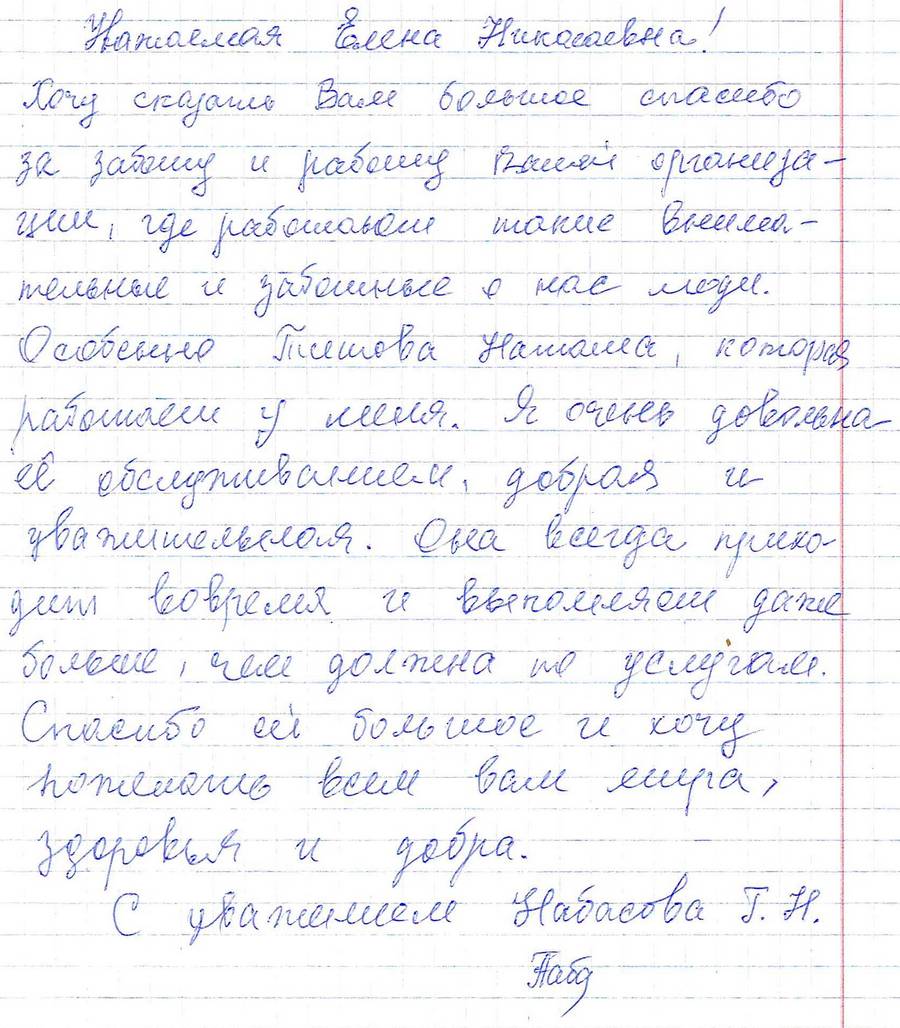 Уважаемая Елена Николаевна!
Хочу сказать Вам большое спасибо
за заботу и работу вашей организа-
ции, где работают такие внима-
тельные и заботные о нас люди.
Особенно Титова Наталья, которая
работает у меня. Я очень довольна
её обслуживанием, добрая и
уважительная. Она всегда прихо-
дит вовремя и выполняет даже
больше, чем должна по услугам.
Спасибо ей большое и хочу
пожелать всем вам мира,
здоровья и добра.
С уважением Набасова Г. Н.